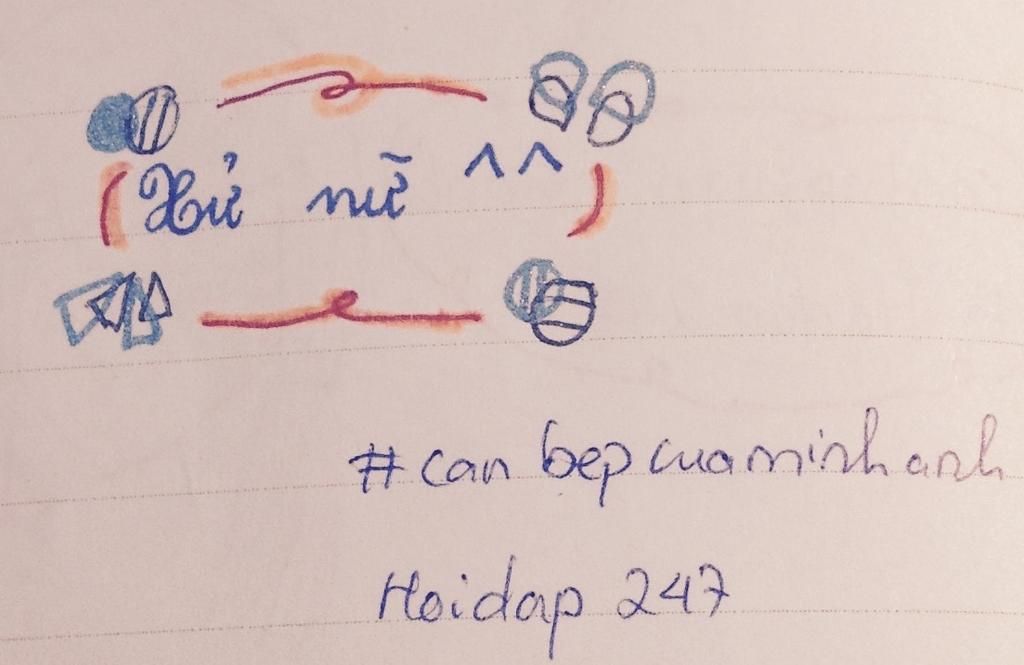 ( Xử nữ ^^ )
#can bepcuaminhanh
Hoidap 247